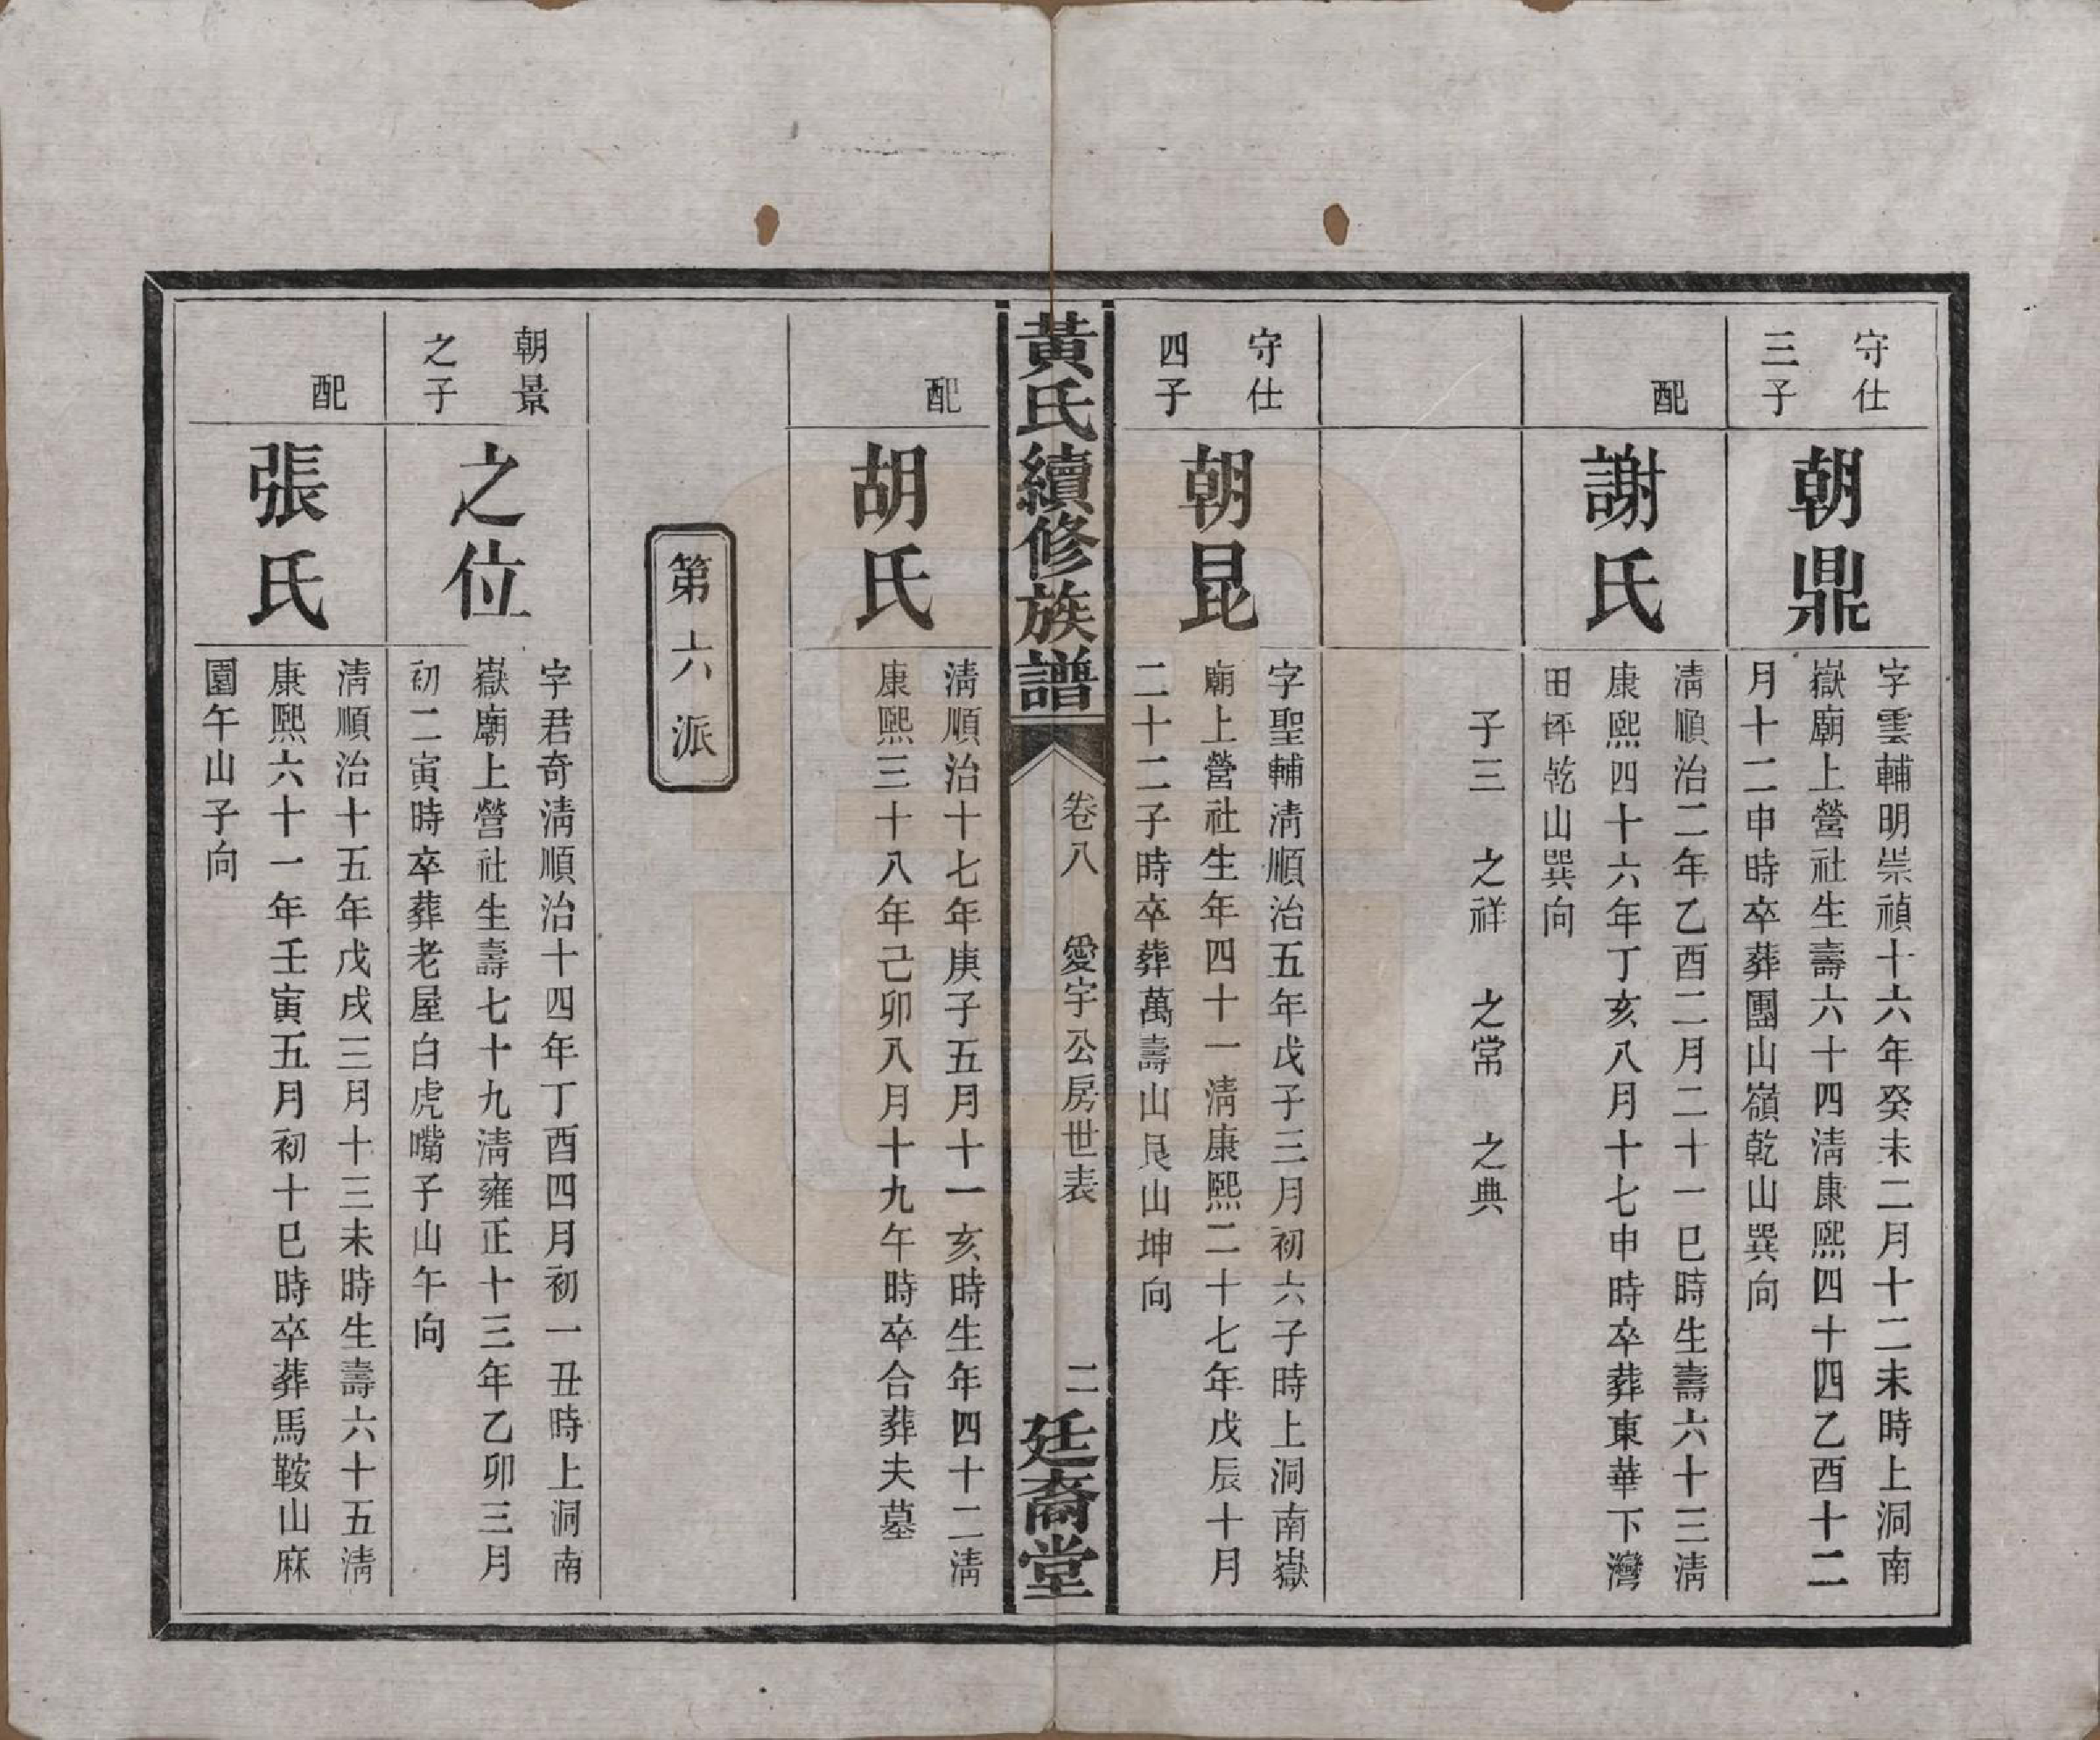 守仕
三子
朝鼎
字雲輔明崇禎十六年癸未二月十二未時上洞南
嶽廟上營社生壽六十四淸康熙四十四乙酉十二
月十二申時卒葬團山嶺乾山巽向
配
謝氏
淸順治二年乙酉二月二十一巳時生壽六十三淸
康熙四十六年丁亥八月十七申時卒葬東華下灣
田坪乾山巽向
子三　之祥　之常　之典
守仕
四子
朝昆
字聖輔淸順治五年戊子三月初六子時上洞南嶽
廟上營社生年四十一淸康熙二十七年戊辰十月
二十二子時卒葬萬壽山艮山坤向
黃氏續修族譜
卷八　愛宇公房世表
二
廷裔堂
配
胡氏
淸順治十七年庚子五月十一亥時生年四十二淸
康熙三十八年己卯八月十九午時卒合葬夫墓
第六派
朝景
之子
之位
字君奇淸順治十四年丁酉四月初一丑時上洞南
嶽廟上營社生壽七十九淸雍正十三年乙卯三月
初二寅時卒葬老屋白虎嘴子山午向
配
張氏
淸順治十五年戊戌三月十三未時生壽六十五淸
康熙六十一年壬寅五月初十巳時卒葬馬鞍山麻
園午山子向